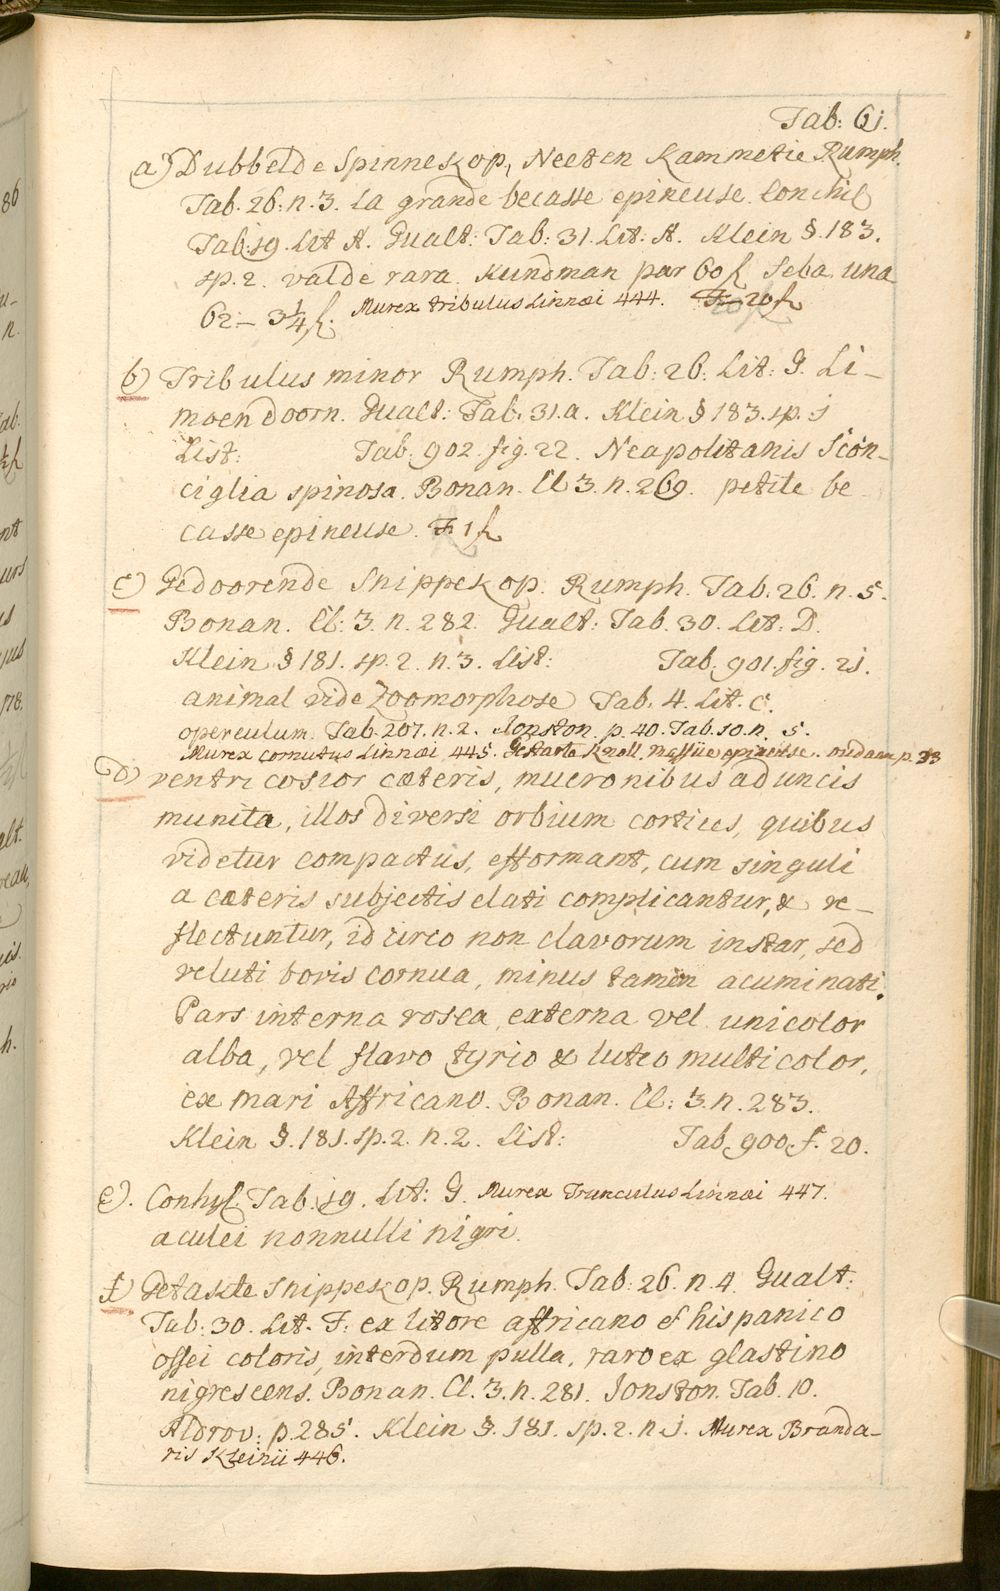 Tab: 61.
a) Dubbelde Spinnekop, Neeten Kammetie Rumph.
Tab. 26. n. 3. la grande becasse epineuse. Conchil
Tab: 19. Lit A. Gualt: Tab: 31. Lit: A. Klein §. 183.
sp. 2. valde rara. Kundman par 60 f. Seba una
62 – 3 1/4 f. Murex tribulus Linnæi 444. 20 f
b) Tribulus minor Rumph. Tab: 26. Lit: G. Li-
moendoorn. Gualt: Tab. 31. a. Klein § 183. sp. 1
List: Tab. 902. fig. 22. Neapolitanis Scon-
ciglia spinosa. Bonan. Cl 3. n. 269. petite be
casse epineuse. F. 1 f
c) Gedoorende Snippekop. Rumph. Tab. 26. n. 5.
Bonan. Cl: 3. n. 282. Gualt: Tab. 30. Lit: D.
Klein § 181. sp. 2. n. 3. List: Tab. 901. fig. 21.
animal vide Zoomorphose Tab. 4. Lit. C.
operculum. Tab. 207. n. 2. Jonston. p. 40. Tab. 10. n. 5.
Murex cornutus Linnæi 445. Knoll. Massue epineuse.
d) ventricosior cæteris, mucronibus aduncis
munita, illos diversi orbium cortices, quibus
videtur compactus, efformant, cum singuli
a cæteris subjectis elati complicantur, & re-
flectuntur, idcirco non clavorum instar, sed
veluti bovis cornua, minus tamen acuminati.
Pars interna rosea, externa vel unicolor
alba, vel flavo tyrio & luteo multicolor,
ex mari Affricano. Bonan. Cl: 3. n. 283.
Klein §. 181. sp. 2. n. 2. List: Tab. 900. f. 20.
e). Conhyl. Tab. 19. Lit: G. Murex Trunculus Linnæi 447.
aculei nonnulli nigri.
f) Getakte Snippekop. Rumph. Tab: 26. n. 4. Gualt:
Tab: 30. Lit. F. ex litore affricano et hispanico
ossei coloris, interdum pulla, raro ex glastino
nigrescens. Bonan. Cl. 3. n. 281. Jonston. Tab. 10.
Aldrov: p. 285. Klein §. 181. sp. 2. n 1. Murex Branda-
ris Kleinii 446.